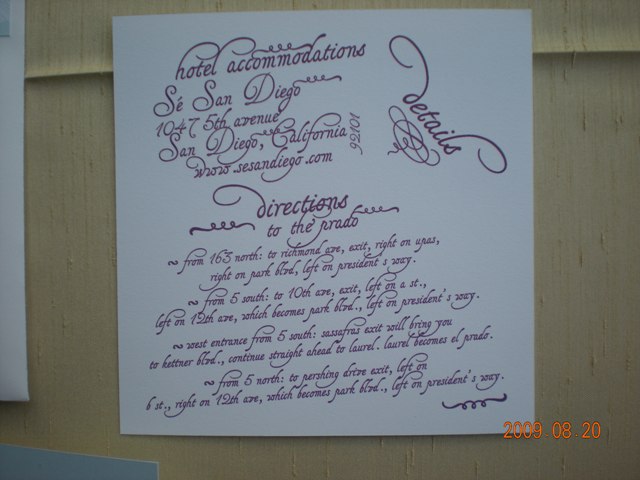 hotel accommodations
Sé San Diego
1047 5th avenue
San Diego, California
92101
www.sesandiego.com
details
directions
to the prado
~ from 163 north: to richmond ave, exit, right on upas,
right on park blvd, left on president's way.
~ from 5 south: to 10th ave, exit, left on a st.,
left on 12th ave, which becomes park blvd., left on president's way.
~ west entrance from 5 south: sassafras exit will bring you
to kettner blvd., continue straight ahead to laurel. laurel becomes el prado.
~ from 5 north: to pershing drive exit, left on
b st., right on 12th ave, which becomes park blvd., left on president's way.
2009.08.20